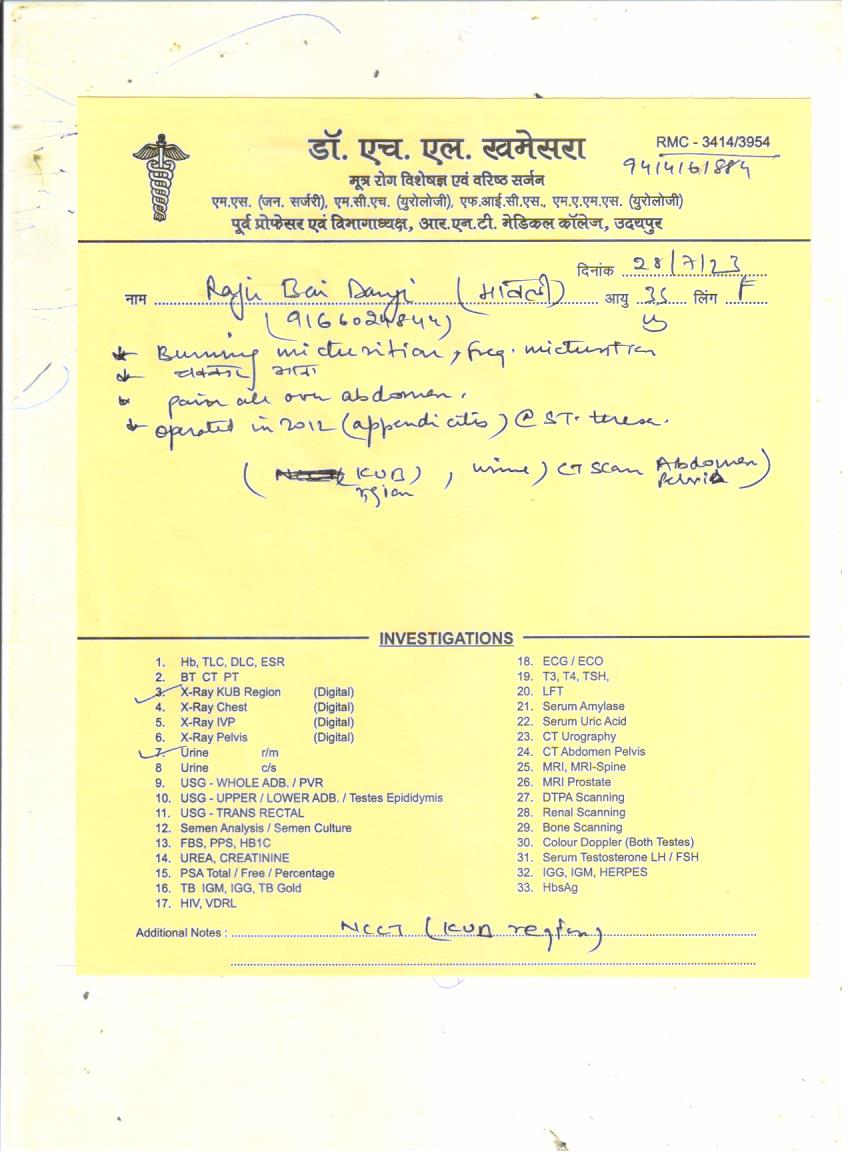 डॉ. एच. एल. खमेसरा
RMC - 3414/3954
9414161884
मूत्र रोग विशेषज्ञ एवं वरिष्ठ सर्जन
एम.एस. (जन. सर्जरी), एम.सी.एच. (युरोलोजी), एफ.आई.सी.एस., एम.ए.एम.एस. (युरोलोजी)
पूर्व प्रोफेसर एवं विभागाध्यक्ष, आर.एन.टी. मेडिकल कॉलेज, उदयपुर
दिनांक 28/7/23
नाम Raju Bai Dangi (मावली) आयु 35 y लिंग F
(9166024844)
Burning micturition, freq. micturition
चक्कर आना
pain all over abdomen.
operated in 2012 (appendicitis) @ ST. teresa.
(KUB region), urine) CT scan Abdomen Pelvis)
INVESTIGATIONS
1. Hb, TLC, DLC, ESR
2. BT CT PT
3. X-Ray KUB Region (Digital)
4. X-Ray Chest (Digital)
5. X-Ray IVP (Digital)
6. X-Ray Pelvis (Digital)
7. Urine r/m
8 Urine c/s
9. USG - WHOLE ADB. / PVR
10. USG - UPPER / LOWER ADB. / Testes Epididymis
11. USG - TRANS RECTAL
12. Semen Analysis / Semen Culture
13. FBS, PPS, HB1C
14. UREA, CREATININE
15. PSA Total / Free / Percentage
16. TB IGM, IGG, TB Gold
17. HIV, VDRL
18. ECG / ECO
19. T3, T4, TSH,
20. LFT
21. Serum Amylase
22. Serum Uric Acid
23. CT Urography
24. CT Abdomen Pelvis
25. MRI, MRI-Spine
26. MRI Prostate
27. DTPA Scanning
28. Renal Scanning
29. Bone Scanning
30. Colour Doppler (Both Testes)
31. Serum Testosterone LH / FSH
32. IGG, IGM, HERPES
33. HbsAg
Additional Notes : NCCT (KUB region)